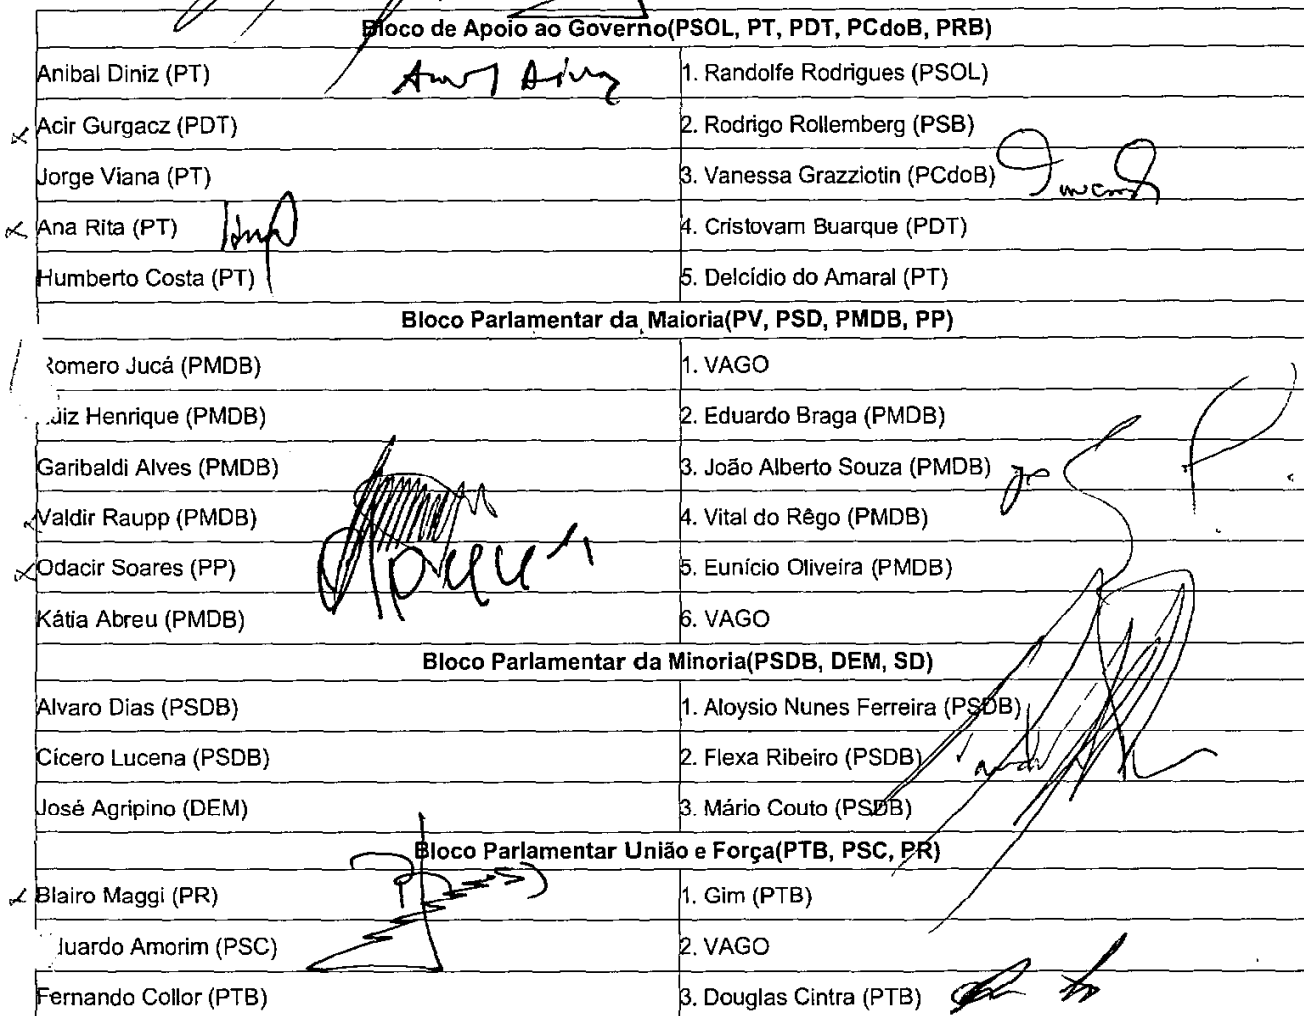 Bloco de Apoio ao Governo(PSOL, PT, PDT, PCdoB, PRB)
Anibal Diniz (PT) 1. Randolfe Rodrigues (PSOL)
Acir Gurgacz (PDT) 2. Rodrigo Rollemberg (PSB)
Jorge Viana (PT) 3. Vanessa Grazziotin (PCdoB)
Ana Rita (PT) 4. Cristovam Buarque (PDT)
Humberto Costa (PT) 5. Delcídio do Amaral (PT)
Bloco Parlamentar da Maioria(PV, PSD, PMDB, PP)
Romero Jucá (PMDB) 1. VAGO
Luiz Henrique (PMDB) 2. Eduardo Braga (PMDB)
Garibaldi Alves (PMDB) 3. João Alberto Souza (PMDB)
Valdir Raupp (PMDB) 4. Vital do Rêgo (PMDB)
Odacir Soares (PP) 5. Eunício Oliveira (PMDB)
Kátia Abreu (PMDB) 6. VAGO
Bloco Parlamentar da Minoria(PSDB, DEM, SD)
Alvaro Dias (PSDB) 1. Aloysio Nunes Ferreira (PSDB)
Cícero Lucena (PSDB) 2. Flexa Ribeiro (PSDB)
José Agripino (DEM) 3. Mário Couto (PSDB)
Bloco Parlamentar União e Força(PTB, PSC, PR)
Blairo Maggi (PR) 1. Gim (PTB)
Eduardo Amorim (PSC) 2. VAGO
Fernando Collor (PTB) 3. Douglas Cintra (PTB)